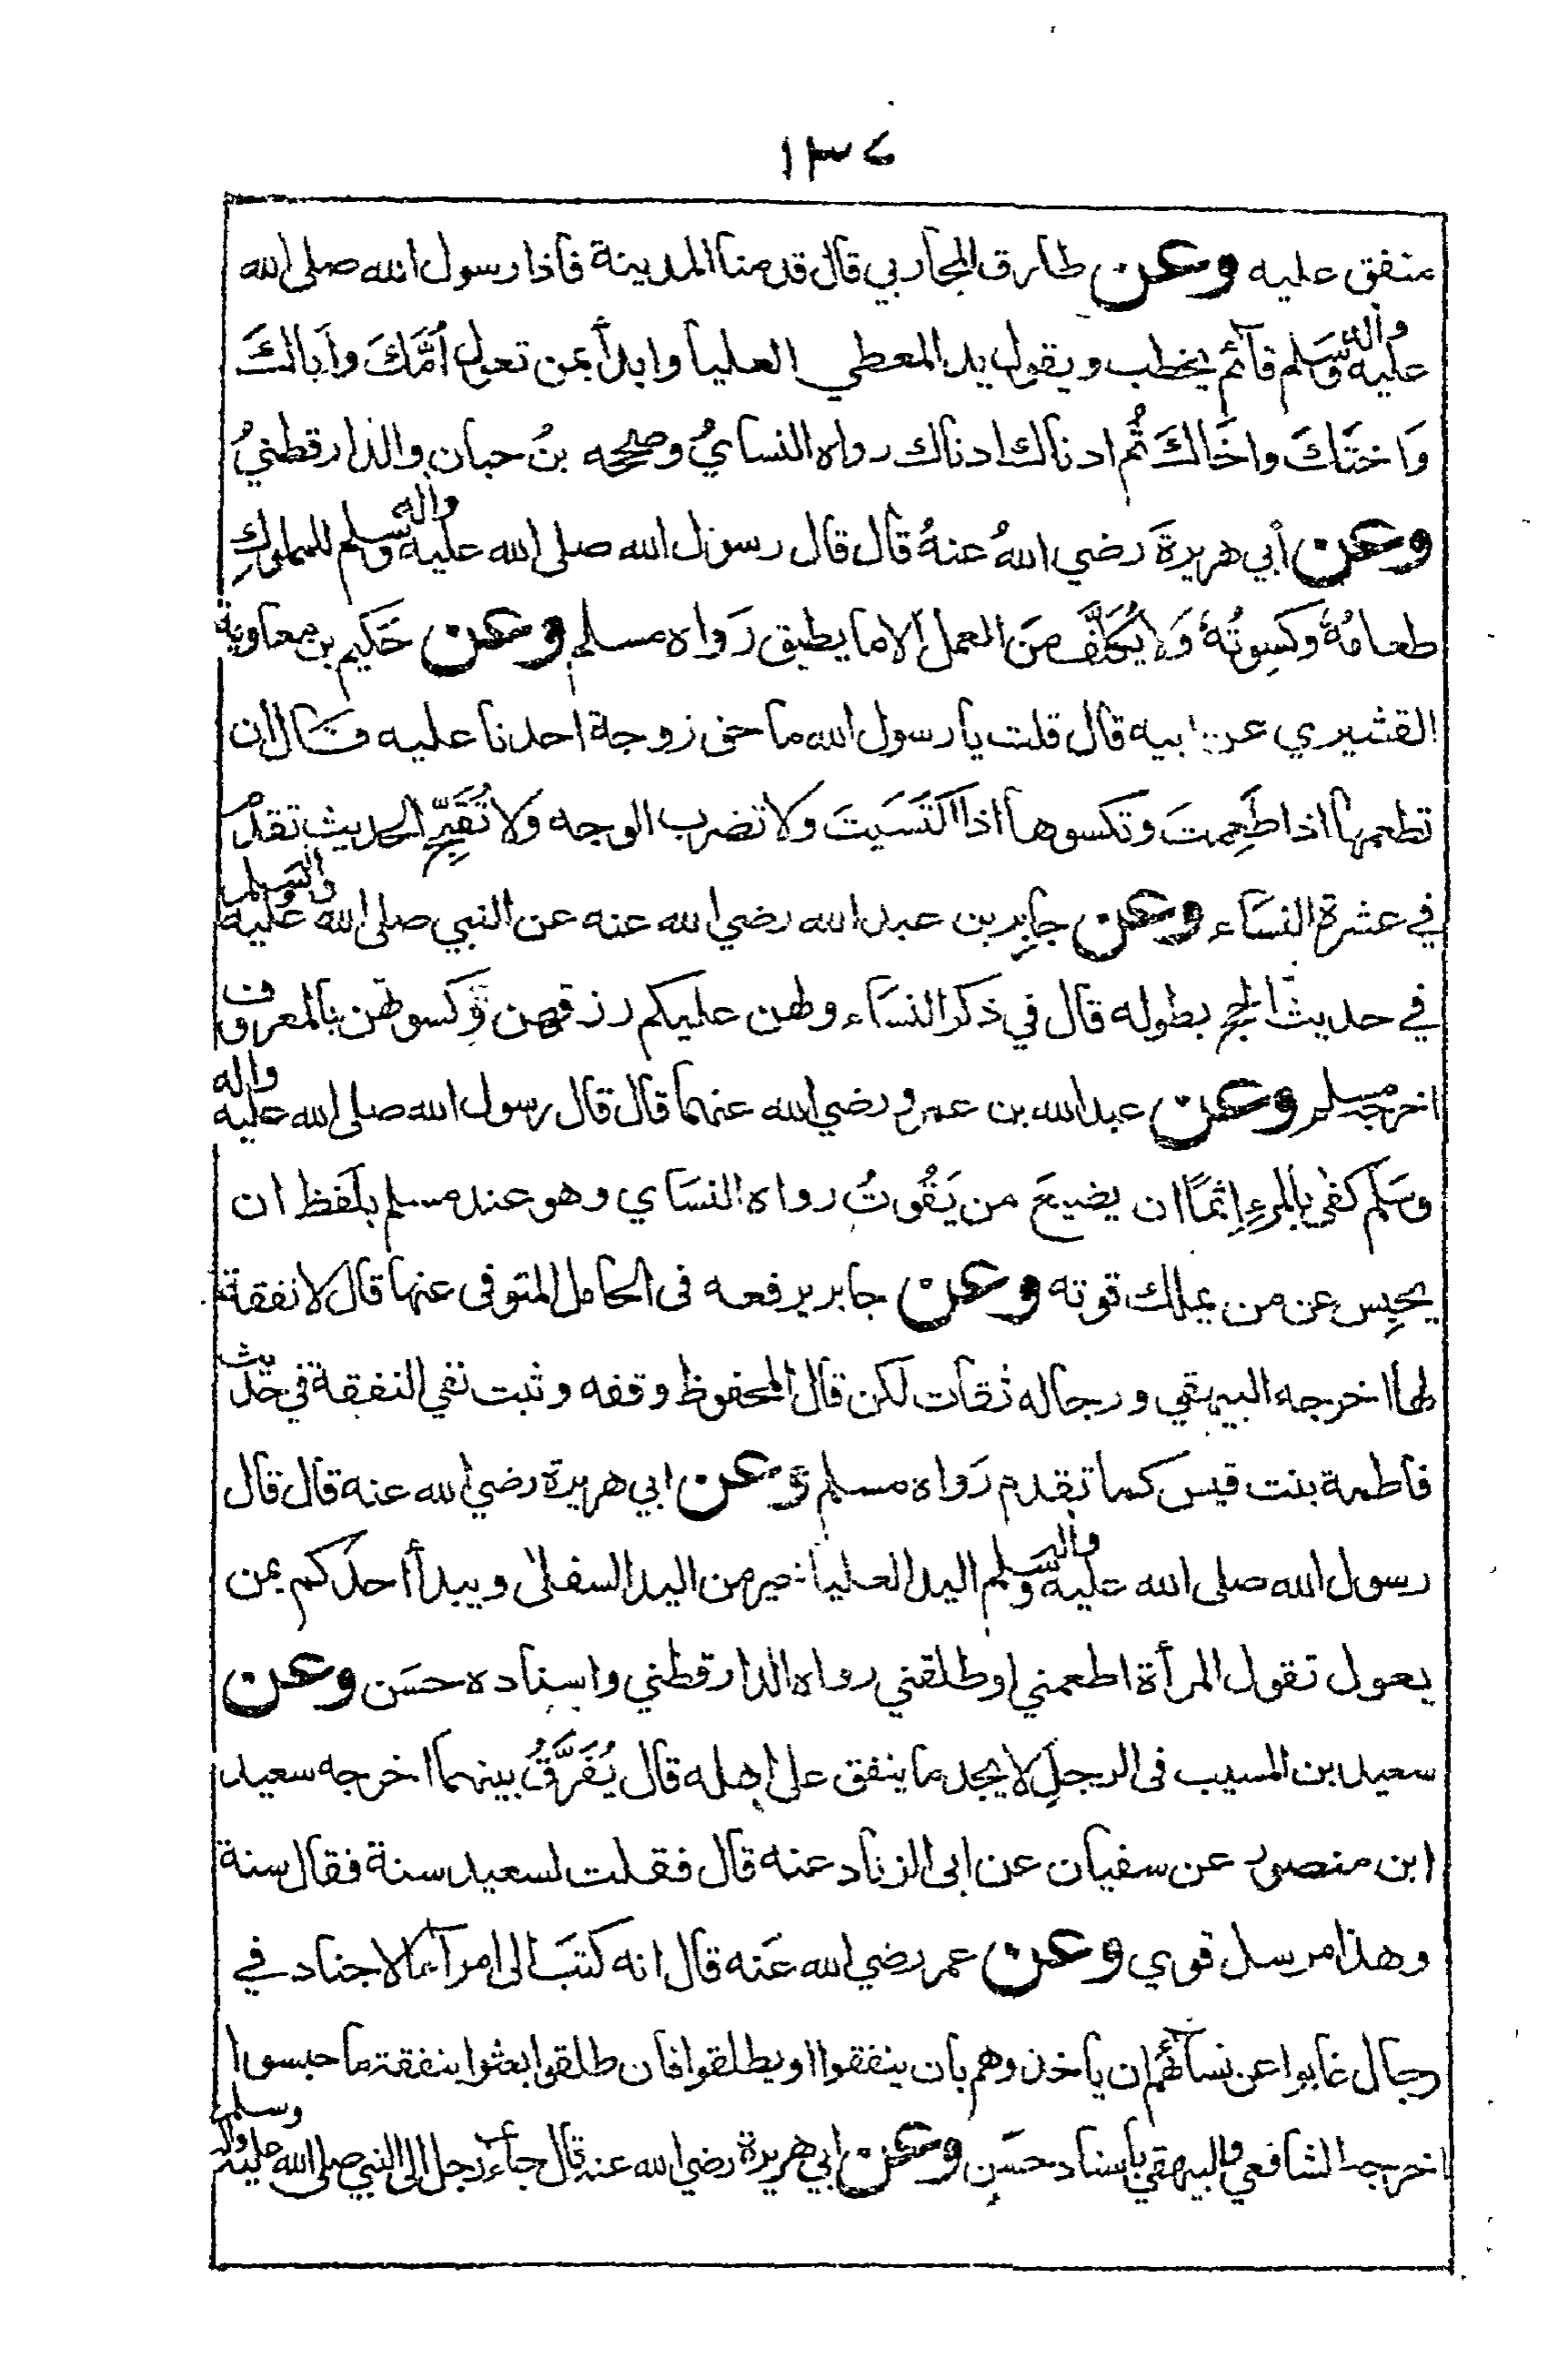 ١٣٤
متفق عليه وعن طارق المحاربي قال قدمنا المدينة فاذا رسول الله صلى الله
عليه وآله وسلم قآئم يخطب ويقول يد المعطي العليا وابدأ بمن تعول أمَّكَ وأباكَ
وَاختَكَ واخَاكَ ثُم ادناك ادناك رواه النسايُ وصححه بنُ حبان والدارقطنيُ
وعن أبي هريرةَ رضي اللهُ عنهُ قال قال رسول الله صلى الله عليه وآله وسلم للمملوكِ
طعامُهُ وكسِوتُهُ وَلا يُكلَّف مِنَ العمل الا ما يطيق رَواه مسلم وعن حَكيم بن معاوية
القشيري عن ابيه قال قلت يا رسول الله ما حق زوجة احدنا عليه قال ان
تطعمها اذا طَعِمتَ وتكسوها اذا اكتَسَيتَ ولا تضرب الوجه وَلا تُقَبِّحِ الحديث تقدمْ
في عشرة النسَاء وعن جابِر بن عبد الله رضي الله عنه عن النبي صلى الله عليه وآله وسلم
في حديث الحج بطوله قال في ذكر النسَاء ولهن عليكم رزقهن وَكسوتهن بالمعروف
اخرجه مسلم وعن عبد الله بن عمرو رضي الله عنهما قال قال رسول الله صلى الله عليه وآله
وسَلم كفى بِالمرءِ إِثمًا ان يضيعَ من يَقُوتُ رواه النسَاي وهو عند مسلم بلفظ ان
يحبِس عن من يملك قوته وعن جابر يرفعه في الحامل المتوفى عنها قال لا نفقة
لها اخرجه البيهقي ورجاله ثقات لكن قال المحفوظ وقفه وثبت نفي النفقة في حديث
فاطمة بنت قيس كما تقدم رَواه مسلم وعن ابي هريرة رضي الله عنه قال قال
رسول الله صلى الله عليه وآله وسلم اليد العليا خير من اليد السفلى ويبدأ احدكم بمن
يعول تقول المرأة اطعمني او طلقني رواه الدارقطني واسناده حسَن وعن
سعيد بن المسيب في الرجلِ لا يجد ما ينفق على اهله قال يُفَرَّقُ بينهما اخرجه سعيد
ابن منصور عن سفيان عن ابي الزناد عنه قال فقلت لسعيد سنة فقال سنة
وهذا مرسل قوي وعن عمر رضي الله عَنه قال انه كتبَ الى امرآء الاجناد في
رجال غابوا عن نسآئهم ان ياخذوهم بان ينفقوا او يطلقوا فان طلقوا بعثوا بنفقة ما حبسوا
اخرجه الشافعي والبيهقي باسناد حسَن وعن ابي هريرة رضي الله عنه قال جآء رجل الى النبي صلى الله عليه وآله وسلم